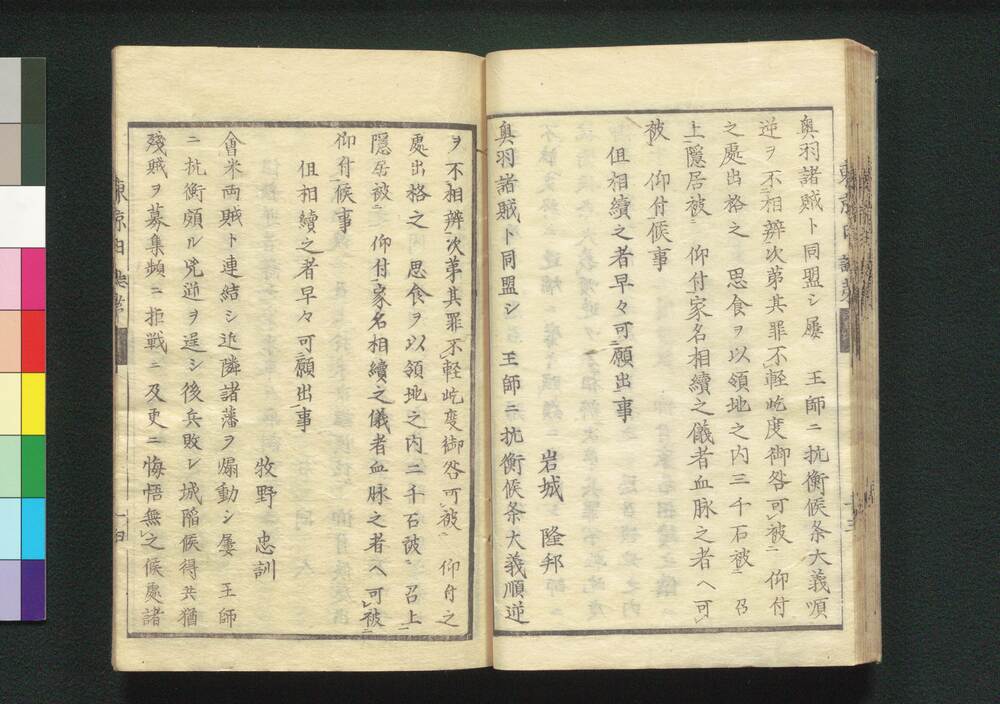 奥羽諸賊ト同盟シ屡　王師ニ抗衡候条大義順
逆ヲ不相辨次第其罪不軽屹度御咎可被　仰付
之處出格之　思食ヲ以領地之内三千石被　召
上隠居被　仰付家名相續之儀者血脉之者ヘ可
被　仰付候事
但相續之者早々可願出事
岩城　隆邦
奥羽諸賊ト同盟シ　王師ニ抗衡候条大義順逆
ヲ不相辨次第其罪不軽屹度御咎可被　仰付之
處出格之　思食ヲ以領地之内二千石被　召上
隠居被　仰付家名相續之儀者血脉之者ヘ可被
仰付候事
但相續之者早々可願出事
牧野　忠訓
會米両賊ト連結シ近隣諸藩ヲ煽動シ屡　王師
ニ抗衡頗ル兇逆ヲ逞シ後兵敗レ城陥候得共猶
残賊ヲ募集頻ニ拒戦ニ及更ニ悔悟無之候處諸